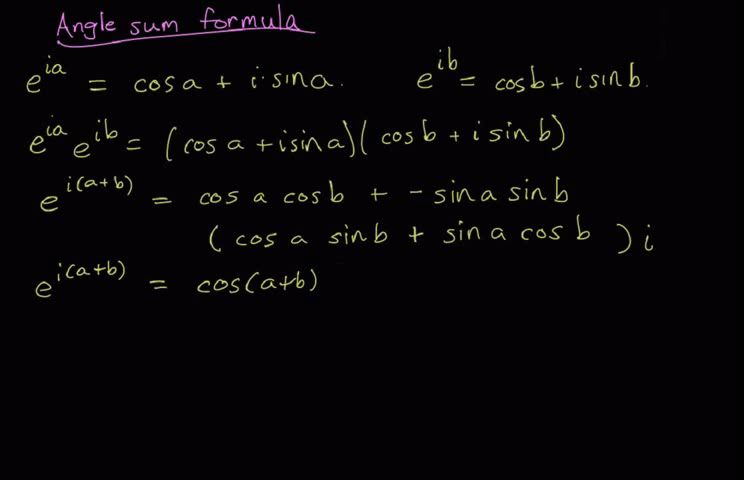 Angle sum formula
e^{ia} = cos a + i·sin a.    e^{ib} = cos b + i sin b.
e^{ia} e^{ib} = (cos a + i sin a)(cos b + i sin b)
e^{i(a+b)} = cos a cos b + - sin a sin b
(cos a sin b + sin a cos b) i
e^{i(a+b)} = cos(a+b)